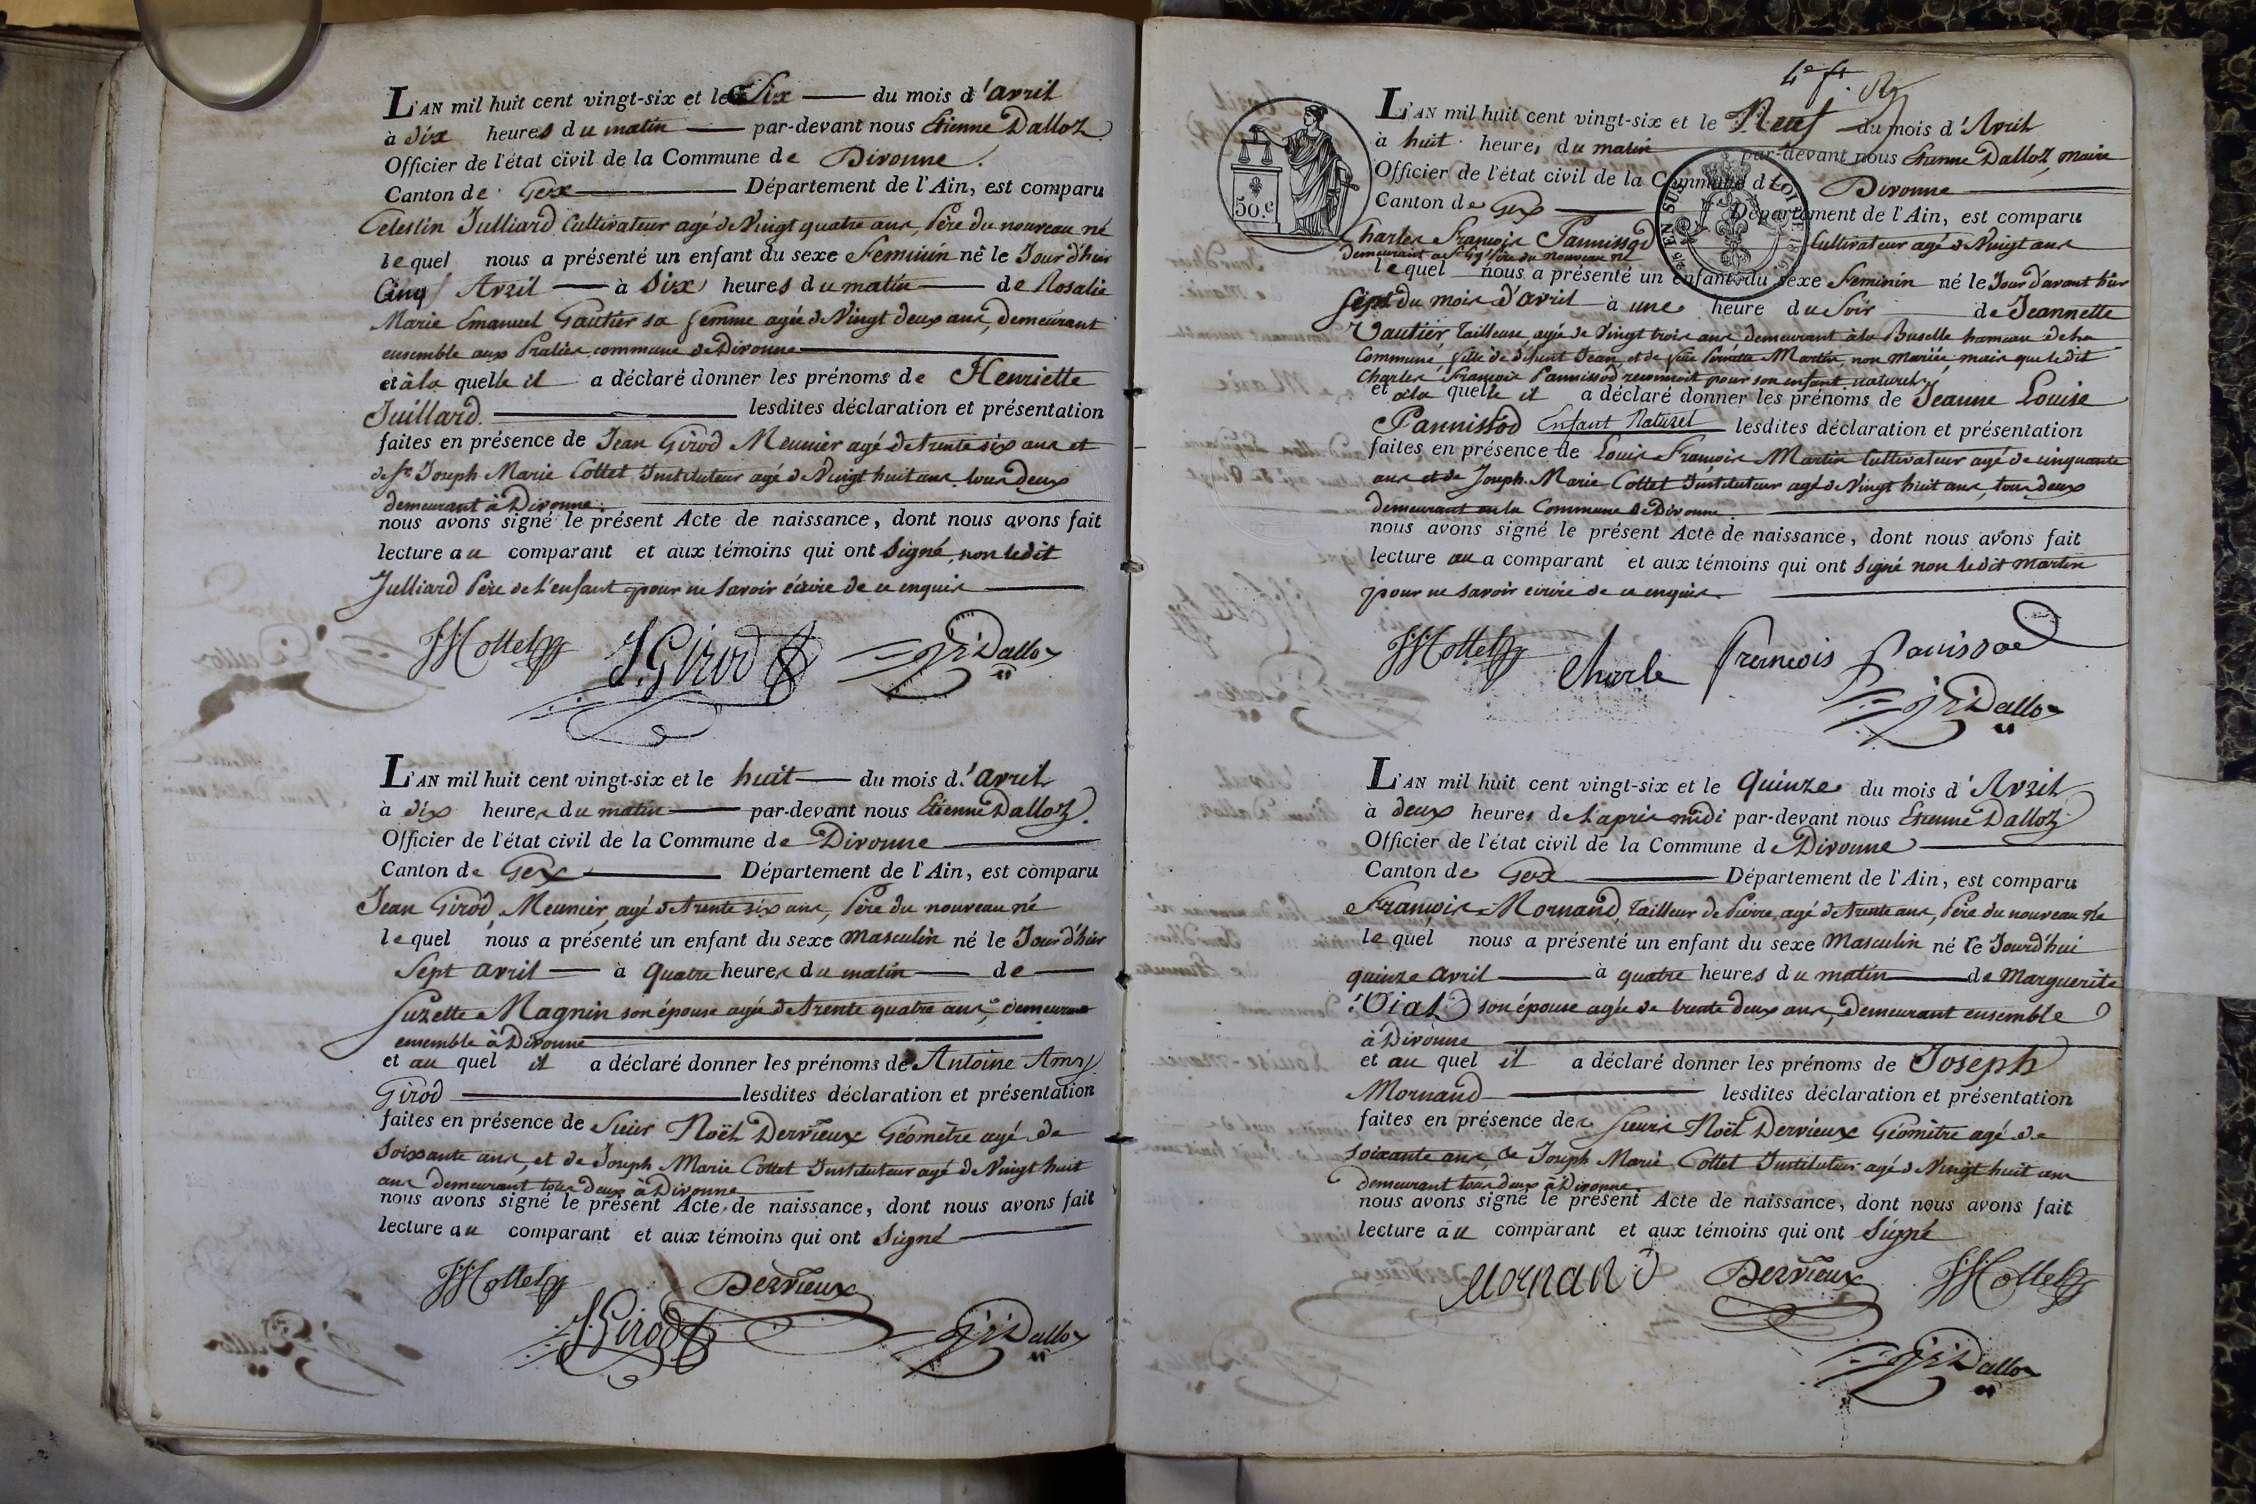 L'AN mil huit cent vingt-six et le Six du mois d'avril
à dix heures du matin par-devant nous Etienne Dalloz
Officier de l'état civil de la Commune de Divonne.
Canton de Gex Département de l'Ain, est comparu
Celestin Julliard Cultivateur agé de Vingt quatre ans, Père du nouveau né
lequel nous a présenté un enfant du sexe Feminin né le Jour d'hier
Cinq Avril à Six heures du matin de Rosalie
Marie Emanuel Gautier sa femme agée de Vingt deux ans, demeurant
ensemble aux commune de Divonne
et à la quelle il a déclaré donner les prénoms de Henriette
Juillard. lesdites déclaration et présentation
faites en présence de Jean Girod Meunier agé de trente six ans et
de Sr Joseph Marie Cottet Instituteur agé de Vingt huit ans tous deux
demeurant à Divonne.
nous avons signé le présent Acte de naissance, dont nous avons fait
lecture au comparant et aux témoins qui ont Signé, non ledit
Julliard Père de l'enfant pour ne savoir écrire de ce enquis
JMCottet J. Girod Dalloz
L'AN mil huit cent vingt-six et le huit du mois d'avril
à dix heures du matin par-devant nous Etienne Dalloz.
Officier de l'état civil de la Commune de Divonne
Canton de Gex Département de l'Ain, est comparu
Jean Girod Meunier, agé de trente six ans, Père du nouveau né
lequel nous a présenté un enfant du sexe masculin né le Jour d'hier
Sept avril à quatre heures du matin de
Suzette Magnin son épouse agée de trente quatre ans, demeurant
ensemble à Divonne
et au quel il a déclaré donner les prénoms de Antoine Amy
Girod lesdites déclaration et présentation
faites en présence de Sieur Noël Dervieux Géomètre agé de
soixante ans, et de Joseph Marie Cottet Instituteur agé de Vingt huit
ans demeurant tous deux à Divonne
nous avons signé le présent Acte de naissance, dont nous avons fait
lecture au comparant et aux témoins qui ont Signé
JMCottet Dervieux
J. Girod Dalloz
50.c
L'AN mil huit cent vingt-six et le Neuf du mois d'Avril
à huit heures du matin par-devant nous Etienne Dalloz, maire
Officier de l'état civil de la Commune de Divonne
Canton de Gex Département de l'Ain, est comparu
EN SUS LOI DE 1816
Charles François Pannissod Cultivateur agé de Vingt ans
demeurant Père du nouveau né
lequel nous a présenté un enfant du sexe Feminin né le Jour d'avant hier
Sept du mois d'avril à une heure du Soir de Jeannette
Vautier, tailleuse, agée de Vingt trois ans demeurant à la Buselle hameau de la
Commune, fille de défunt Jean et de Martin, non mariée, mais que ledit
Charles François Pannissod reconnoit pour son enfant naturel
et à la quelle il a déclaré donner les prénoms de Jeanne Louise
Pannissod Enfant Naturel lesdites déclaration et présentation
faites en présence de Louis François Martin Cultivateur agé de cinquante
ans et de Joseph Marie Cottet Instituteur agé de Vingt huit ans, tous deux
demeurant en la Commune de Divonne
nous avons signé le présent Acte de naissance, dont nous avons fait
lecture au comparant et aux témoins qui ont Signé non ledit Martin
pour ne savoir écrire de ce enquis.
JMCottet Charle François Panissod
Dalloz
L'AN mil huit cent vingt-six et le Quinze du mois d'Avril
à deux heures de l'après midi par-devant nous Etienne Dalloz
Officier de l'état civil de la Commune de Divonne
Canton de Gex Département de l'Ain, est comparu
François Mornand, tailleur de Pierre, agé de trente ans, Père du nouveau né
lequel nous a présenté un enfant du sexe Masculin né le Jourd'hui
quinze avril à quatre heures du matin de Marguerite
Vial son épouse agée de trente deux ans, demeurant ensemble
à Divonne
et au quel il a déclaré donner les prénoms de Joseph
Mornand lesdites déclaration et présentation
faites en présence des Sieurs Noël Dervieux Géomètre agé de
soixante ans, & Joseph Marie Cottet Instituteur agé de Vingt huit ans
demeurant tous deux à Divonne
nous avons signé le présent Acte de naissance, dont nous avons fait
lecture au comparant et aux témoins qui ont Signé
Mornand Dervieux JMCottet
Dalloz